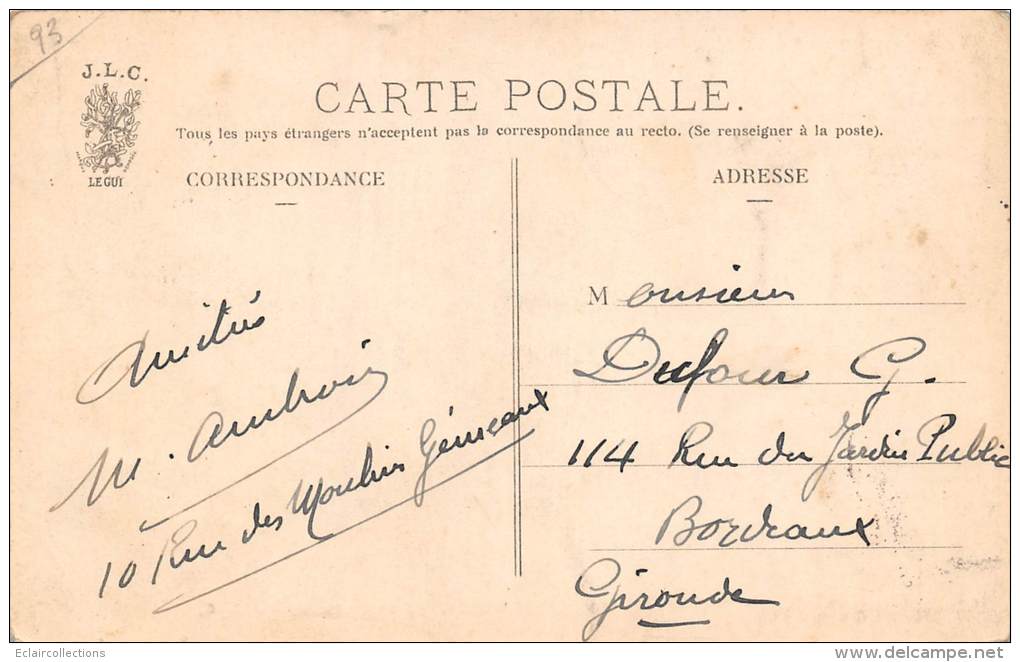 93
J.L.C.
LE GUI
CARTE POSTALE.
Tous les pays étrangers n'acceptent pas la correspondance au recto. (Se renseigner à la poste).
CORRESPONDANCE
ADRESSE
Amitiés
M. Ambroix
10 Rue des Moulins Gémeaux
Monsieur
Dufour G.
114 Rue du Jardin Public
Bordeaux
Gironde
Eclaircollections
www.delcampe.net